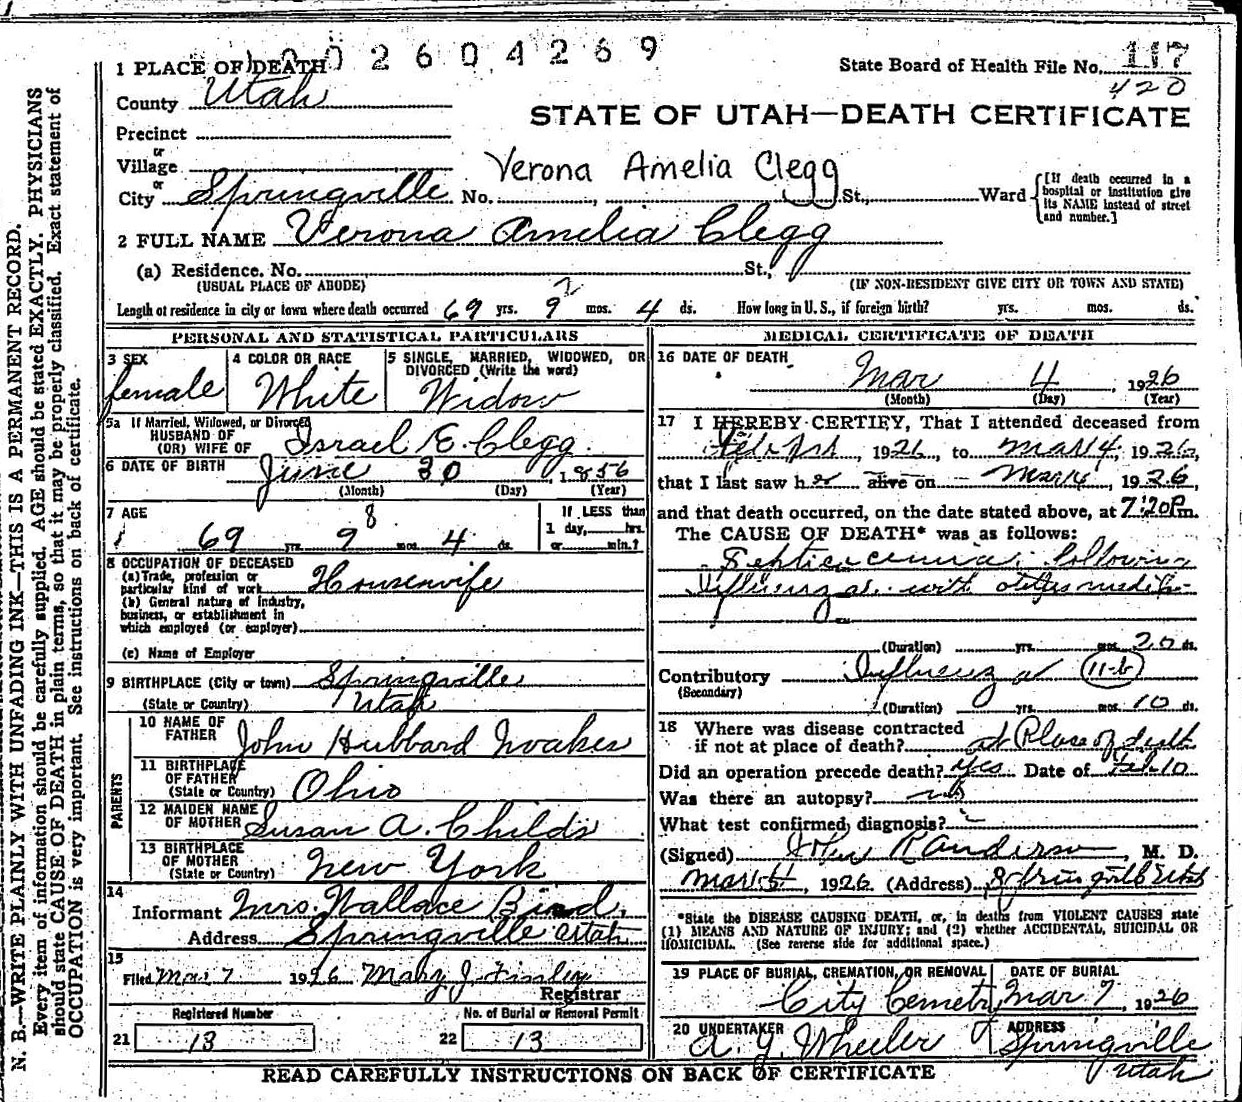 1 PLACE OF DEATH 002604269
State Board of Health File No. 117
County Utah 420
STATE OF UTAH—DEATH CERTIFICATE
Precinct
or
Village
Verona Amelia Clegg
or
City Springville No. St., Ward [If death occurred in a hospital or institution give its NAME instead of street and number.]
2 FULL NAME Verona Amelia Clegg
(a) Residence. No. St.,
(USUAL PLACE OF ABODE) (IF NON-RESIDENT GIVE CITY OR TOWN AND STATE)
Length of residence in city or town where death occurred 69 yrs. 9 mos. 4 ds. How long in U.S., if foreign birth? yrs. mos. ds.
PERSONAL AND STATISTICAL PARTICULARS
3 SEX
female
4 COLOR OR RACE
White
5 SINGLE, MARRIED, WIDOWED, OR
DIVORCED (Write the word)
Widow
5a If Married, Widowed, or Divorced
HUSBAND OF
(OR) WIFE OF Israel E. Clegg
6 DATE OF BIRTH June 30 1856
(Month) (Day) (Year)
7 AGE 8
69 yrs. 9 mos. 4 ds.
If LESS than
1 day, hrs.
or min.?
8 OCCUPATION OF DECEASED
(a) Trade, profession or
particular kind of work Housewife
(b) General nature of industry,
business, or establishment in
which employed (or employer)
(c) Name of Employer
9 BIRTHPLACE (City or town) Springville
(State or Country) Utah
PARENTS
10 NAME OF
FATHER John Hubbard Noakes
11 BIRTHPLACE
OF FATHER
(State or Country) Ohio
12 MAIDEN NAME
OF MOTHER Susan A. Childs
13 BIRTHPLACE
OF MOTHER
(State or Country) New York
14
Informant Mrs. Wallace Bird,
Address Springville Utah
15
Filed Mar 7 1926 Mary J. Finley
Registrar
Registered Number
21 13
No. of Burial or Removal Permit
22 13
MEDICAL CERTIFICATE OF DEATH
16 DATE OF DEATH
Mar 4, 1926
(Month) (Day) (Year)
17 I HEREBY CERTIFY, That I attended deceased from
, 1926, to Mar 4, 1926,
that I last saw her alive on Mar 4, 1926,
and that death occurred, on the date stated above, at 7:20 Pm.
The CAUSE OF DEATH* was as follows:
Septicaemia following
Influenza with
(Duration) yrs. mos. 20 ds.
Contributory Influenza 11-b
(Secondary)
(Duration) yrs. mos. 10 ds.
18 Where was disease contracted
if not at place of death? at Place of death
Did an operation precede death? Yes Date of Feb 10
Was there an autopsy? no
What test confirmed diagnosis?
(Signed) John R Anderson, M. D.
Mar 5, 1926 (Address) Springville Utah
*State the DISEASE CAUSING DEATH, or, in deaths from VIOLENT CAUSES state
(1) MEANS AND NATURE OF INJURY; and (2) whether ACCIDENTAL, SUICIDAL OR
HOMICIDAL. (See reverse side for additional space.)
19 PLACE OF BURIAL, CREMATION, OR REMOVAL
City Cemetry
DATE OF BURIAL
Mar 7, 1926
20 UNDERTAKER
A. Y. Wheeler
ADDRESS
Springville
Utah
READ CAREFULLY INSTRUCTIONS ON BACK OF CERTIFICATE
N. B.—WRITE PLAINLY WITH UNFADING INK—THIS IS A PERMANENT RECORD.
Every item of information should be carefully supplied. AGE should be stated EXACTLY. PHYSICIANS
should state CAUSE OF DEATH in plain terms, so that it may be properly classified. Exact statement of
OCCUPATION is very important. See instructions on back of certificate.